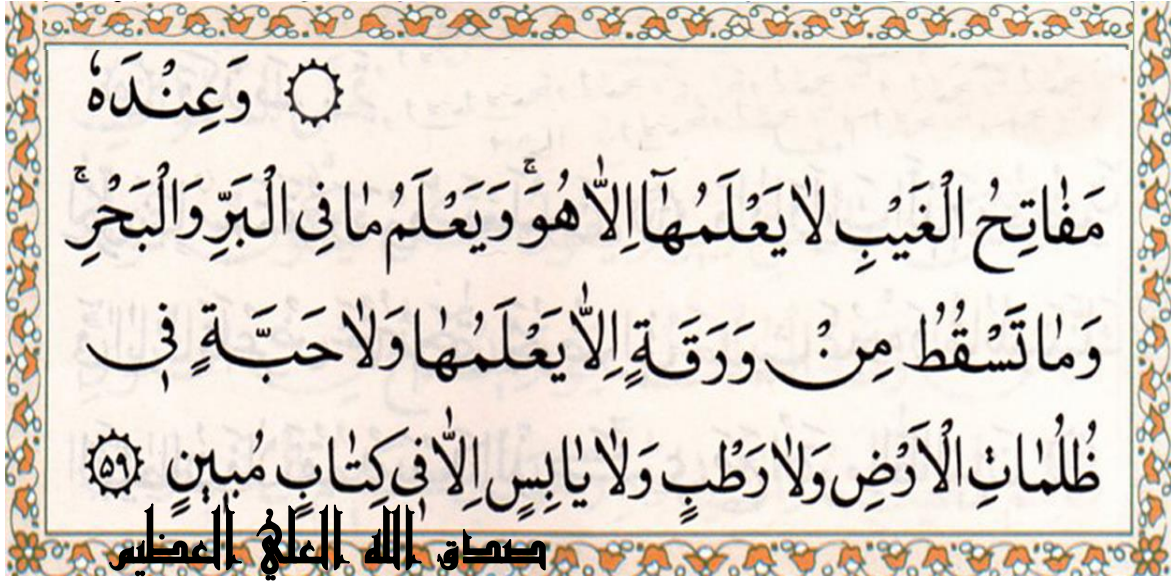 وَعِنْدَهُ
مَفَاتِحُ الْغَيْبِ لَا يَعْلَمُهَآ اِلَّا هُوَ ۚ وَيَعْلَمُ مَا فِى الْبَرِّ وَالْبَحْرِ ۚ
وَمَا تَسْقُطُ مِنْ وَرَقَةٍ اِلَّا يَعْلَمُهَا وَلَا حَبَّةٍ فٖى
ظُلُمَاتِ الْاَرْضِ وَلَا رَطْبٍ وَلَا يَابِسٍ اِلَّا فٖى كِتَابٍ مُبٖينٍ ﴿٥٩﴾
صدق الله العليُ العظيم